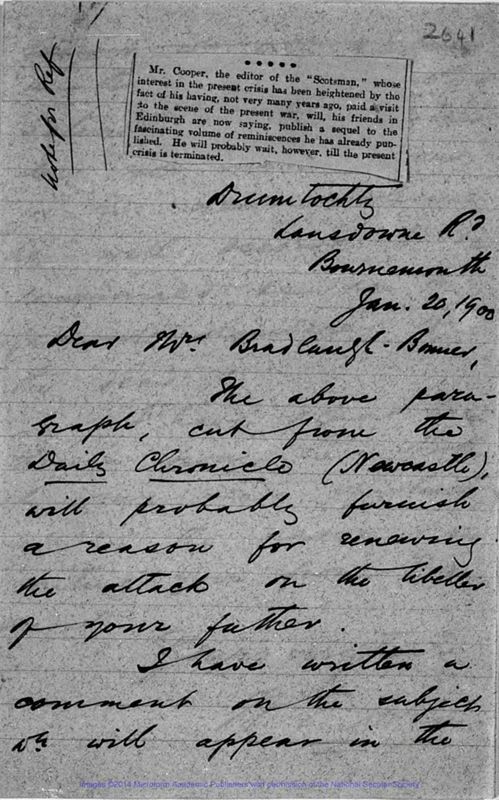 2641
Note for Ref
Mr. Cooper, the editor of the "Scotsman," whose
interest in the present crisis has been heightened by the
fact of his having, not very many years ago, paid a visit
to the scene of the present war, will, his friends in
Edinburgh are now saying, publish a sequel to the
fascinating volume of reminiscences he has already pub-
lished. He will probably wait, however, till the present
crisis is terminated.
Drumtochty
Lansdowne Rd
Bournemouth
Jan. 20, 1900
Dear Mrs Bradlaugh-Bonner,
The above para-
graph, cut from the
Daily Chronicle (Newcastle),
will probably furnish
a reason for renewing
the attack on the libeller
of your father.
I have written a
comment on the subject
wh will appear in the
Images ©2014 Microform Academic Publishers with permission of the National Secular Society